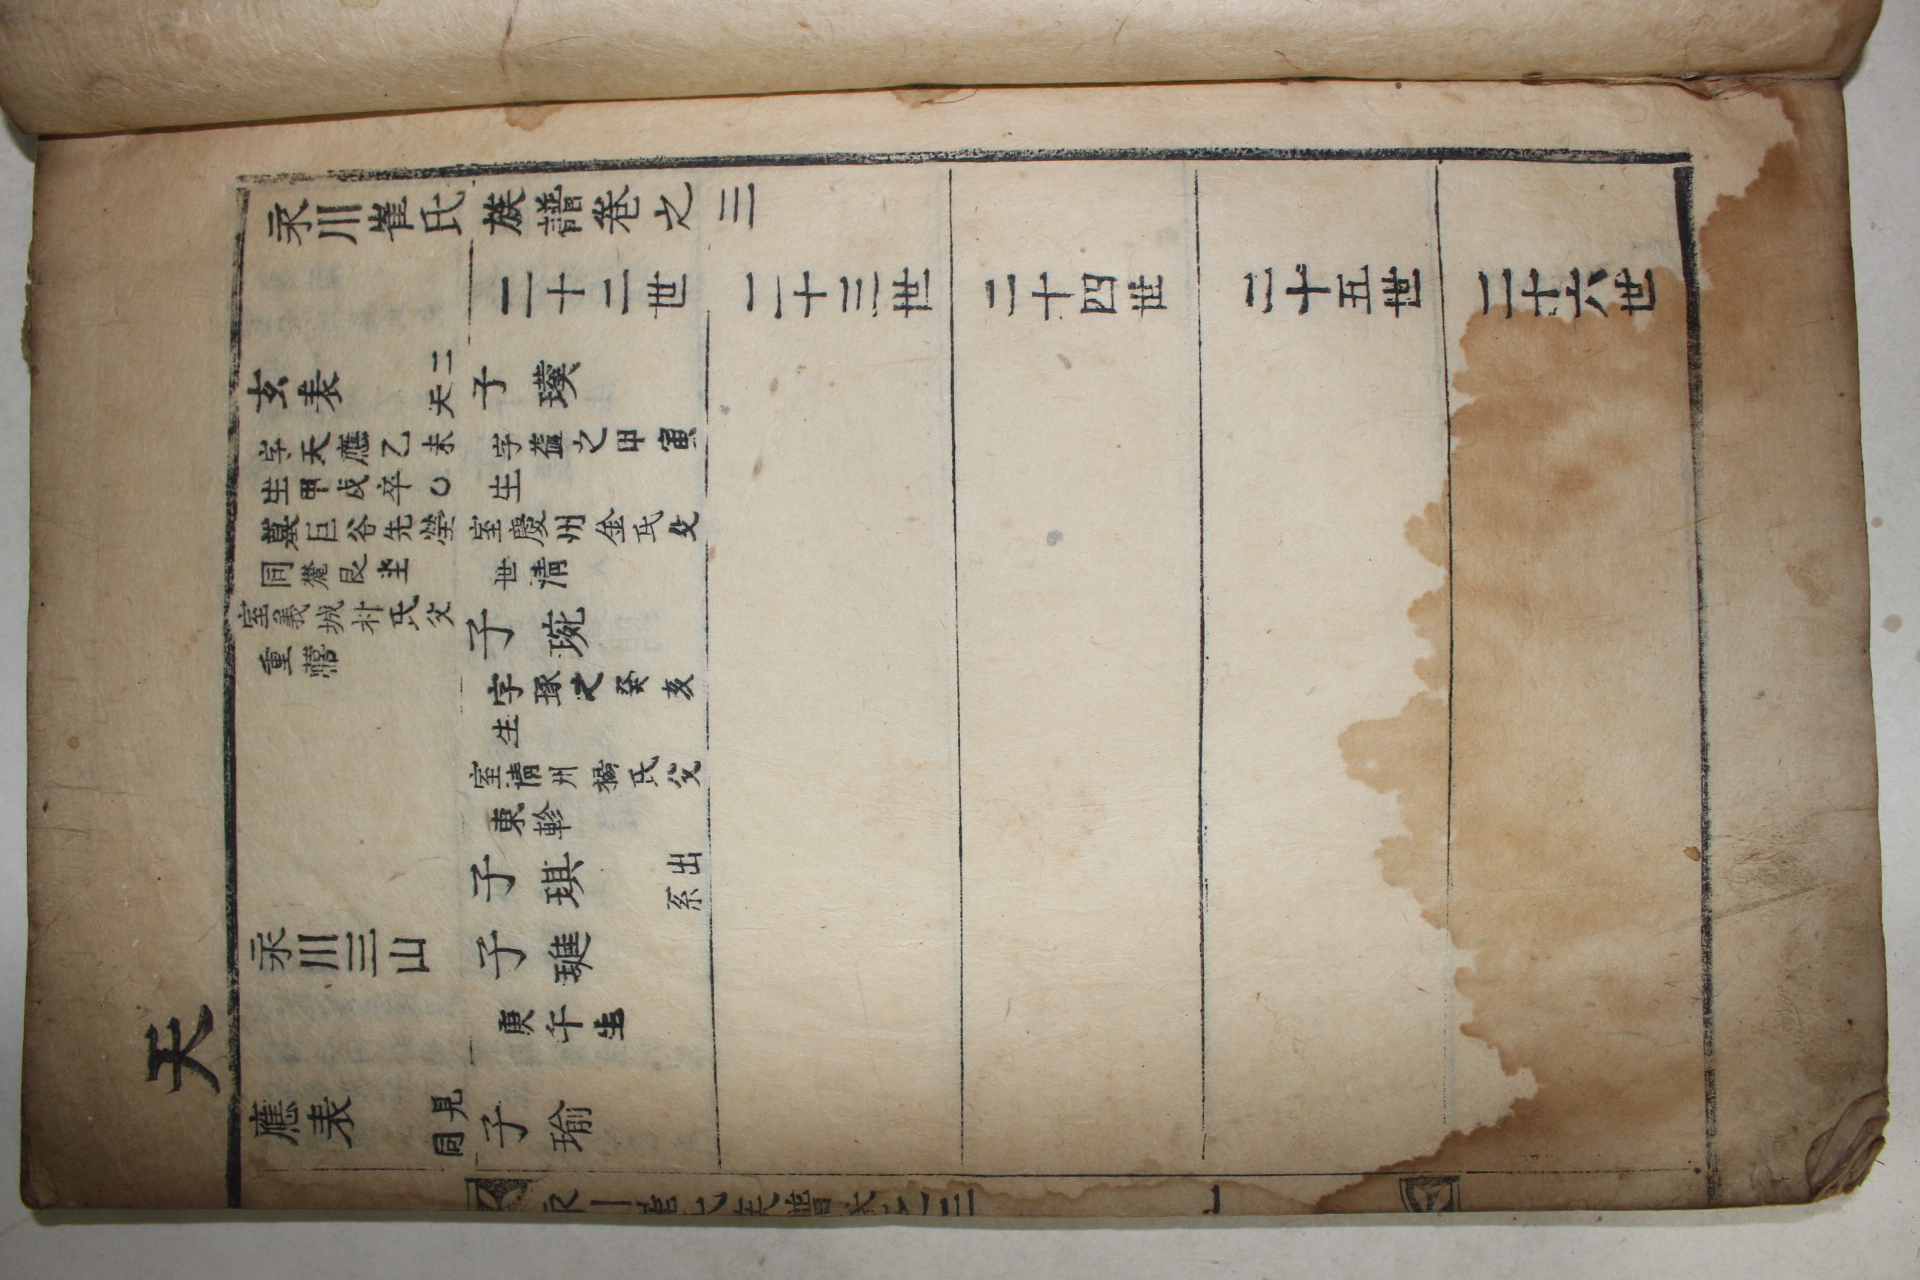 天
永川崔氏族譜卷之三
二十二世
二十三世
二十四世
二十五世
二十六世
玄表
二天
字天應乙未
生甲戌卒〇
墓巨谷先塋
同麓艮坐
室義城朴氏父
重
子璞
字蘊之甲寅
生
室慶州金氏父
世清
子琬
字琢之癸亥
生
室清州楊氏父
東軫
子琪
出系
永川三山
子璡
庚午生
應表
見同
子瑜
永川崔氏族譜卷之三
一